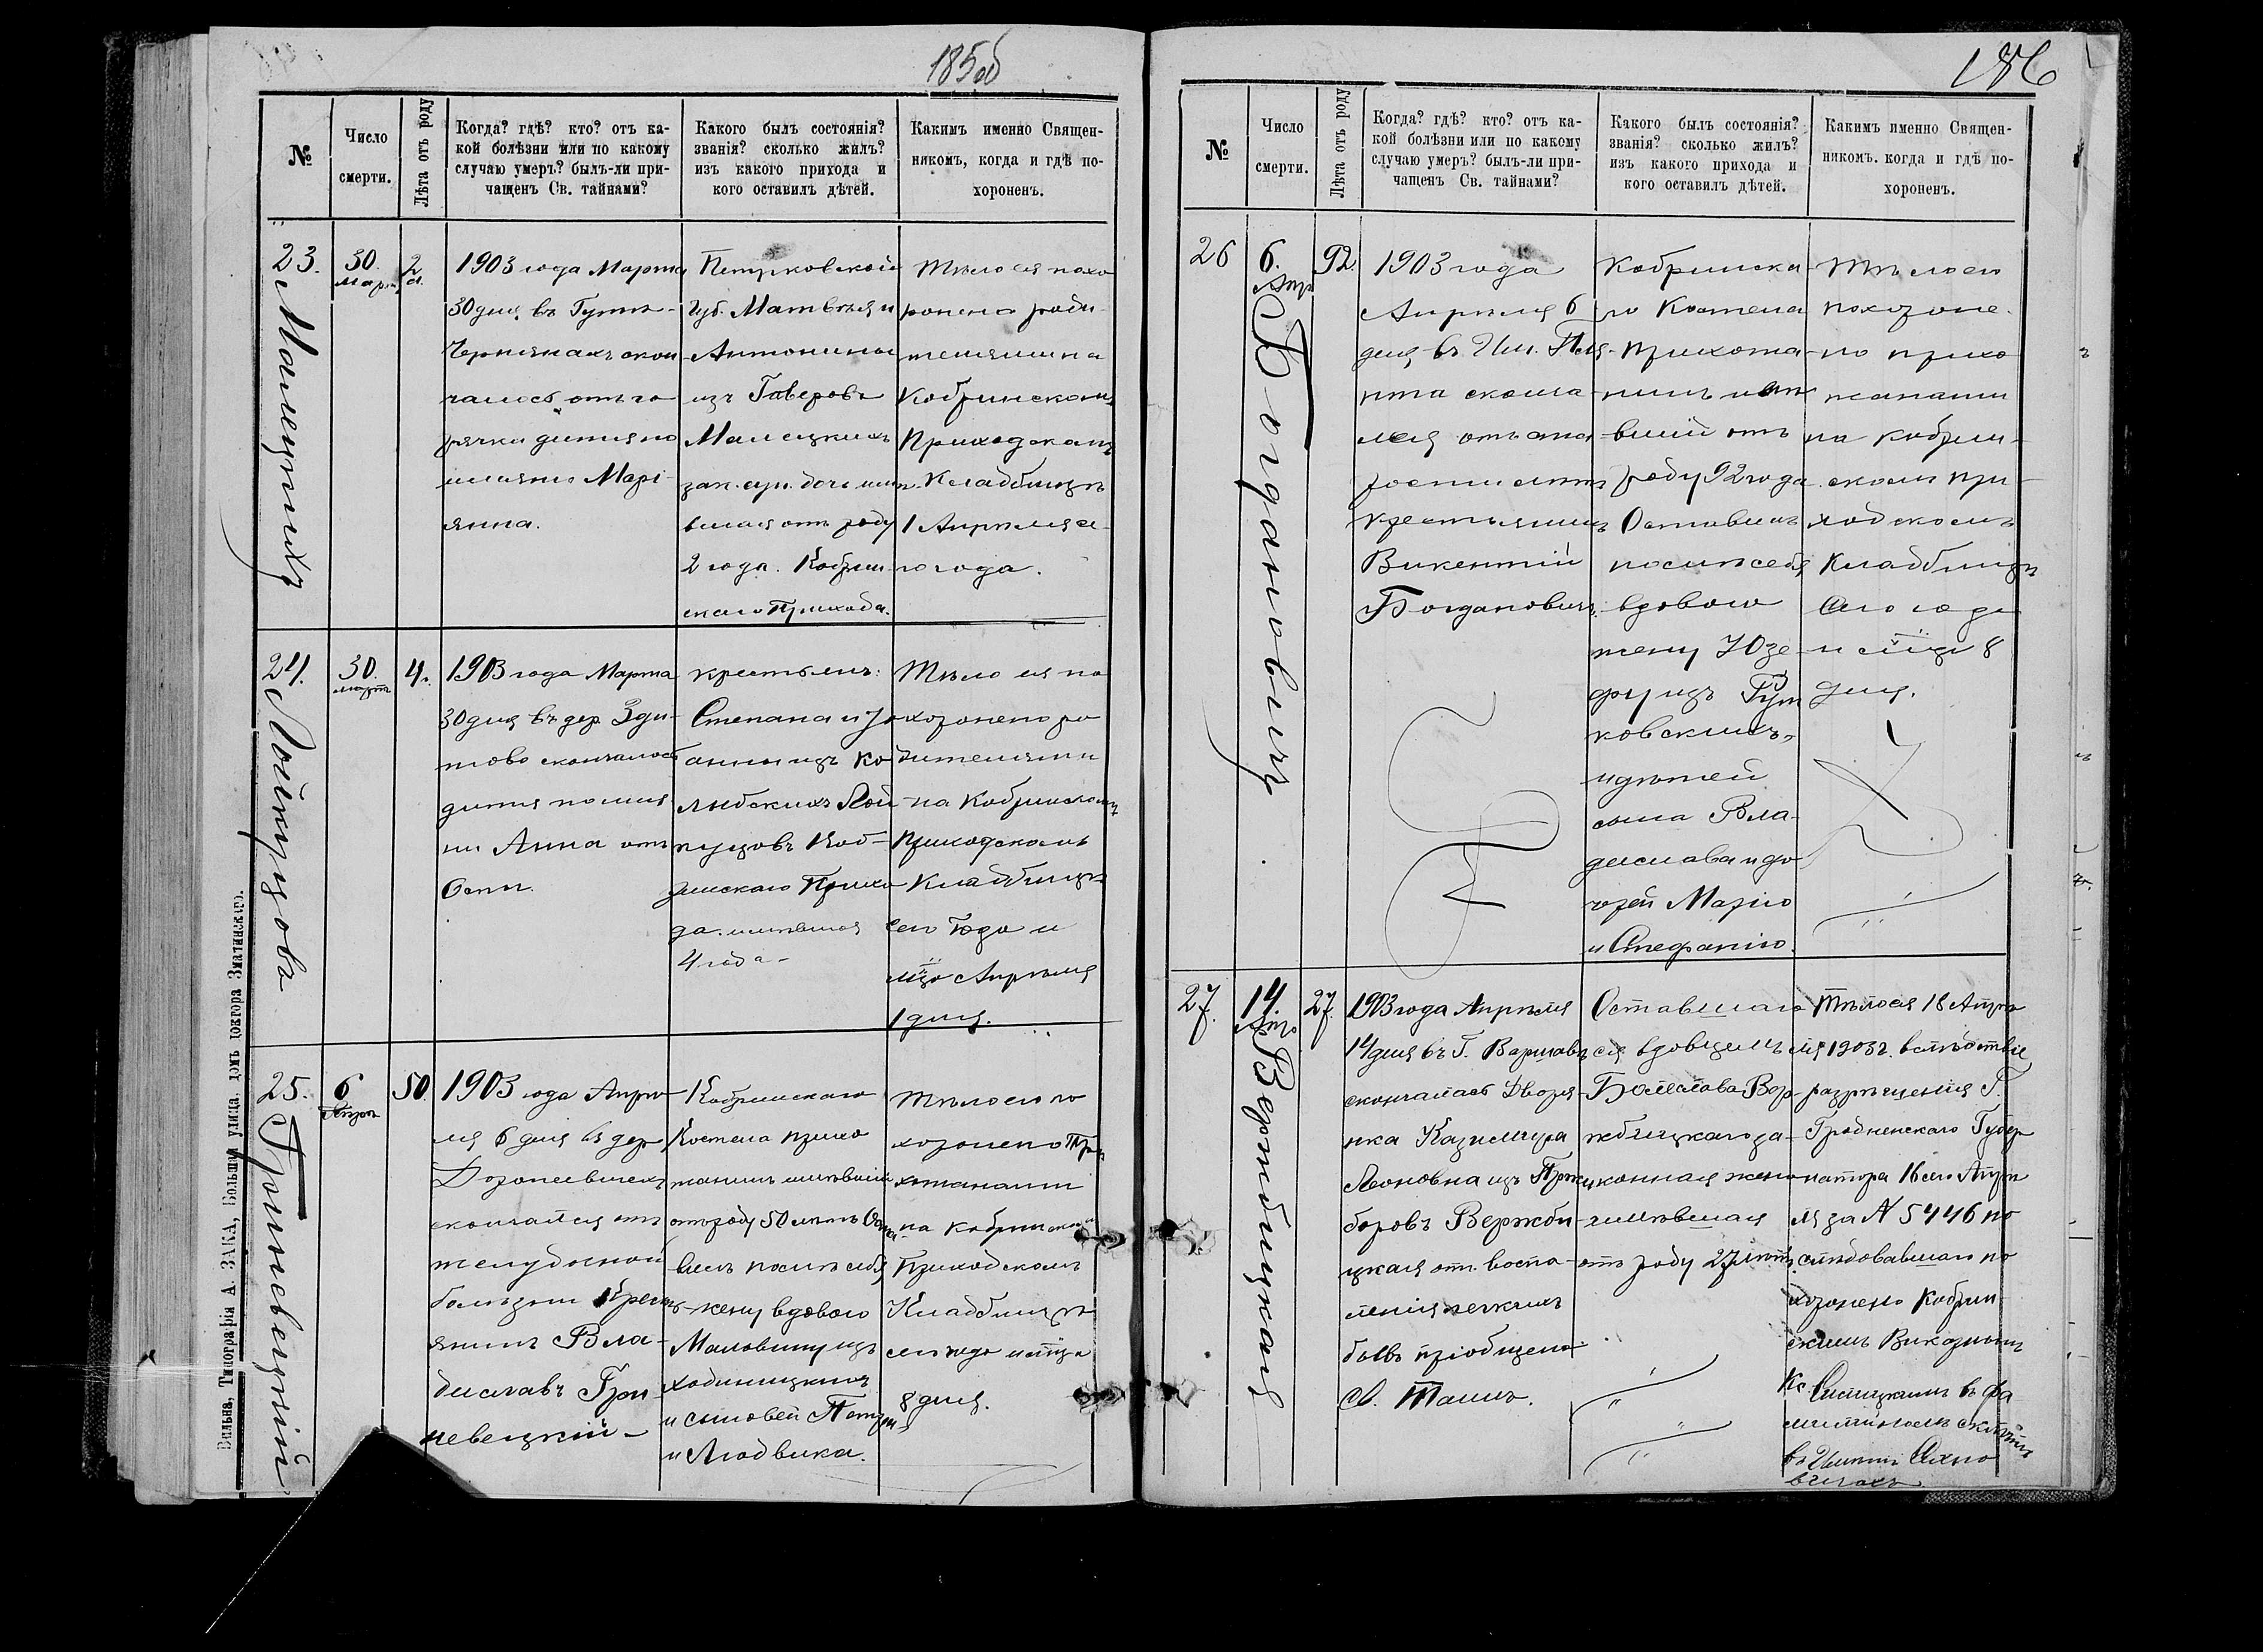 185об
№
Число
смерти.
Лѣта отъ роду
Когда? гдѣ? кто? отъ ка-
кой болѣзни или по какому
случаю умеръ? былъ-ли при-
чащенъ Св. тайнами?
Какого былъ состоянія?
званія? сколько жилъ?
изъ какого прихода и
кого оставилъ дѣтей.
Какимъ именно Священ-
никомъ, когда и гдѣ по-
хороненъ.
23.
30.
Март
2
1903 года Марта
30 дня въ Гутѣ-
скон
чалось отъ го
рячки дитя по
имени Марі-
янна.
Петрковской
Губ. Матвѣя и
Антонины
изъ Гаверовъ
Малецкихъ
зак. суп. дочь имѣ
вшая отъ роду
2 года. Кобрин
скаго Прихода.
Тѣло ея похо
ронено роди
телями на
Кобринскомъ
Приходскомъ
Кладбищѣ
1 Апрѣля се
го года.
24.
Лойкуцовъ
30.
марта
4.
1903 года Марта
30 дня въ дер. Зди-
тово скончалось
дитя по име
ни Анна отъ
Оспы.
крестьянъ:
Степана и Jо
анны изъ Ко
лыбскихъ Лой
куцовъ Коб-
ринскаго Прихо
да. имѣвшая
4 года-
Тѣло ея по
хоронено ро
дителями
на Кобринскомъ
Приходскомъ
Кладбищѣ
сего года и
мца Апрѣля
1 дня.
25.
Гриневецкій
6
Апрѣл
50.
1903 года Апрѣ
ля 6 дня въ дер
скончался отъ
желудочной
болѣзни Кресть
янинъ Вла-
диславъ Гри
невецкій-
Кобринскаго
Костела прихо
жанинъ имѣвшій
отъ роду 50 лѣтъ Оста
вилъ послѣ себя
жену вдовою
Мальвину изъ
Ходиницкихъ
и сыновей
и Людвика.
Тѣло его по
хоронено При
хожанами
на Кобринском
Приходскомъ
Кладбищѣ
сего года и мца
8 дня.
Вильна, Типографія А. ЗАКА, Большая улица, домъ доктора Зматинскаго.
186
№
Число
смерти.
Лѣта отъ роду
Когда? гдѣ? кто? отъ ка-
кой болѣзни или по какому
случаю умеръ? былъ-ли при-
чащенъ Св. тайнами?
Какого былъ состоянія?
званія? сколько жилъ?
изъ какого прихода и
кого оставилъ дѣтей.
Какимъ именно Священ-
никомъ, когда и гдѣ по-
хороненъ.
26
Богдановичъ
6.
Апр
92.
1903 года
Апрѣля 6
дня въ Им. Пля-
нта сконча
лся отъ ста
рости лѣтъ
крестьянинъ
Викентій
Богдановичъ.
Кобринска
го Костела
прихожа
нинъ имѣ
вшій отъ
роду 92 года
Оставилъ
послѣ себя
вдовою
жену Юзе-
фу изъ Гут
ковскихъ,
и дѣтей
сына Вла-
дислава и до
черей Марію
и Стефанію.
Тѣло его
похороне-
но прихо
жанами
на Кобрин-
скомъ При-
ходскомъ
Кладбищѣ
сего года
и мца 8
дня.
27.
Вержбицкая
14.
Апр
27.
1903 года Апрѣля
14 дня въ Г. Варшавѣ
скончалась Дворя-
нка Казимира
Леоновна изъ
боровъ Вержби-
цкая отъ воспа-
ленія легкихъ
бывъ пріобщена
Св. Таинъ.
Оставшаго
ся вдовцемъ
Болеслава Вер
жбицкаго за-
конная жена
имѣвшая
отъ роду 27 лѣтъ.
Тѣло ея 18 Апрѣ
ля 1903 г. вслѣдствіе
разрѣшенія Г.
Гродненскаго Губер
натора 16 сего Апрѣ
ля за N 5446 по
слѣдовавшаго по
хоронено Кобрин
скимъ Викарнымъ
Кс. въ фа
мильномъ склепѣ
въ Имѣніи